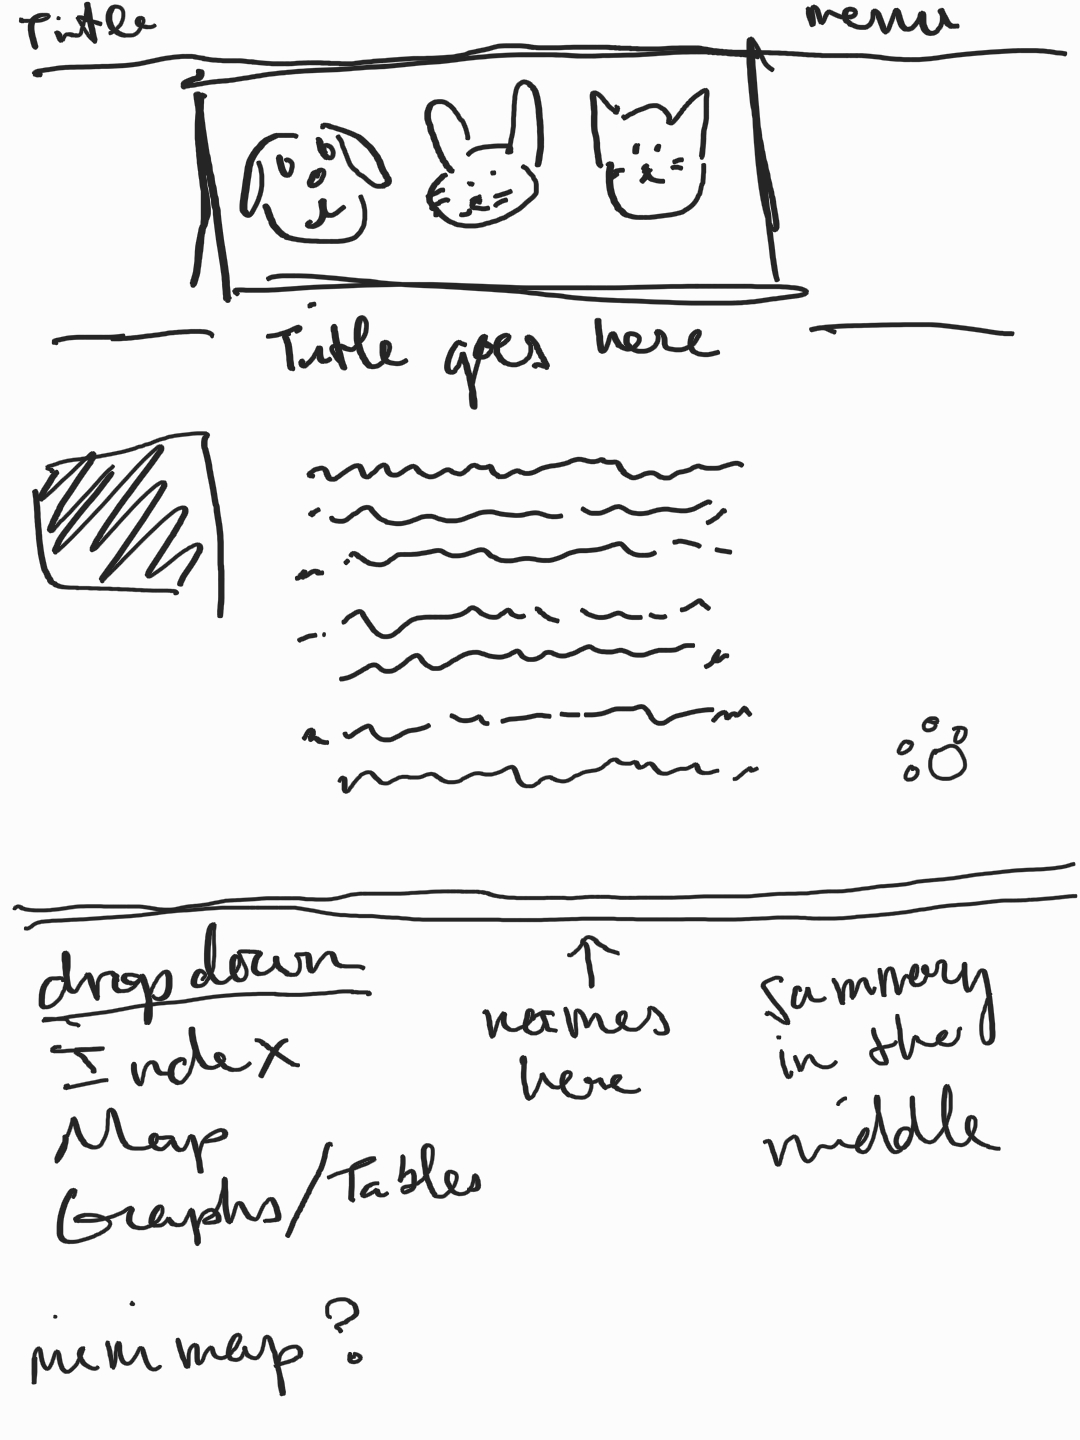 Title menu
Title goes here
drop down
Index
Map
Graphs/Tables
mini map?
names
here
Summary
in the
middle